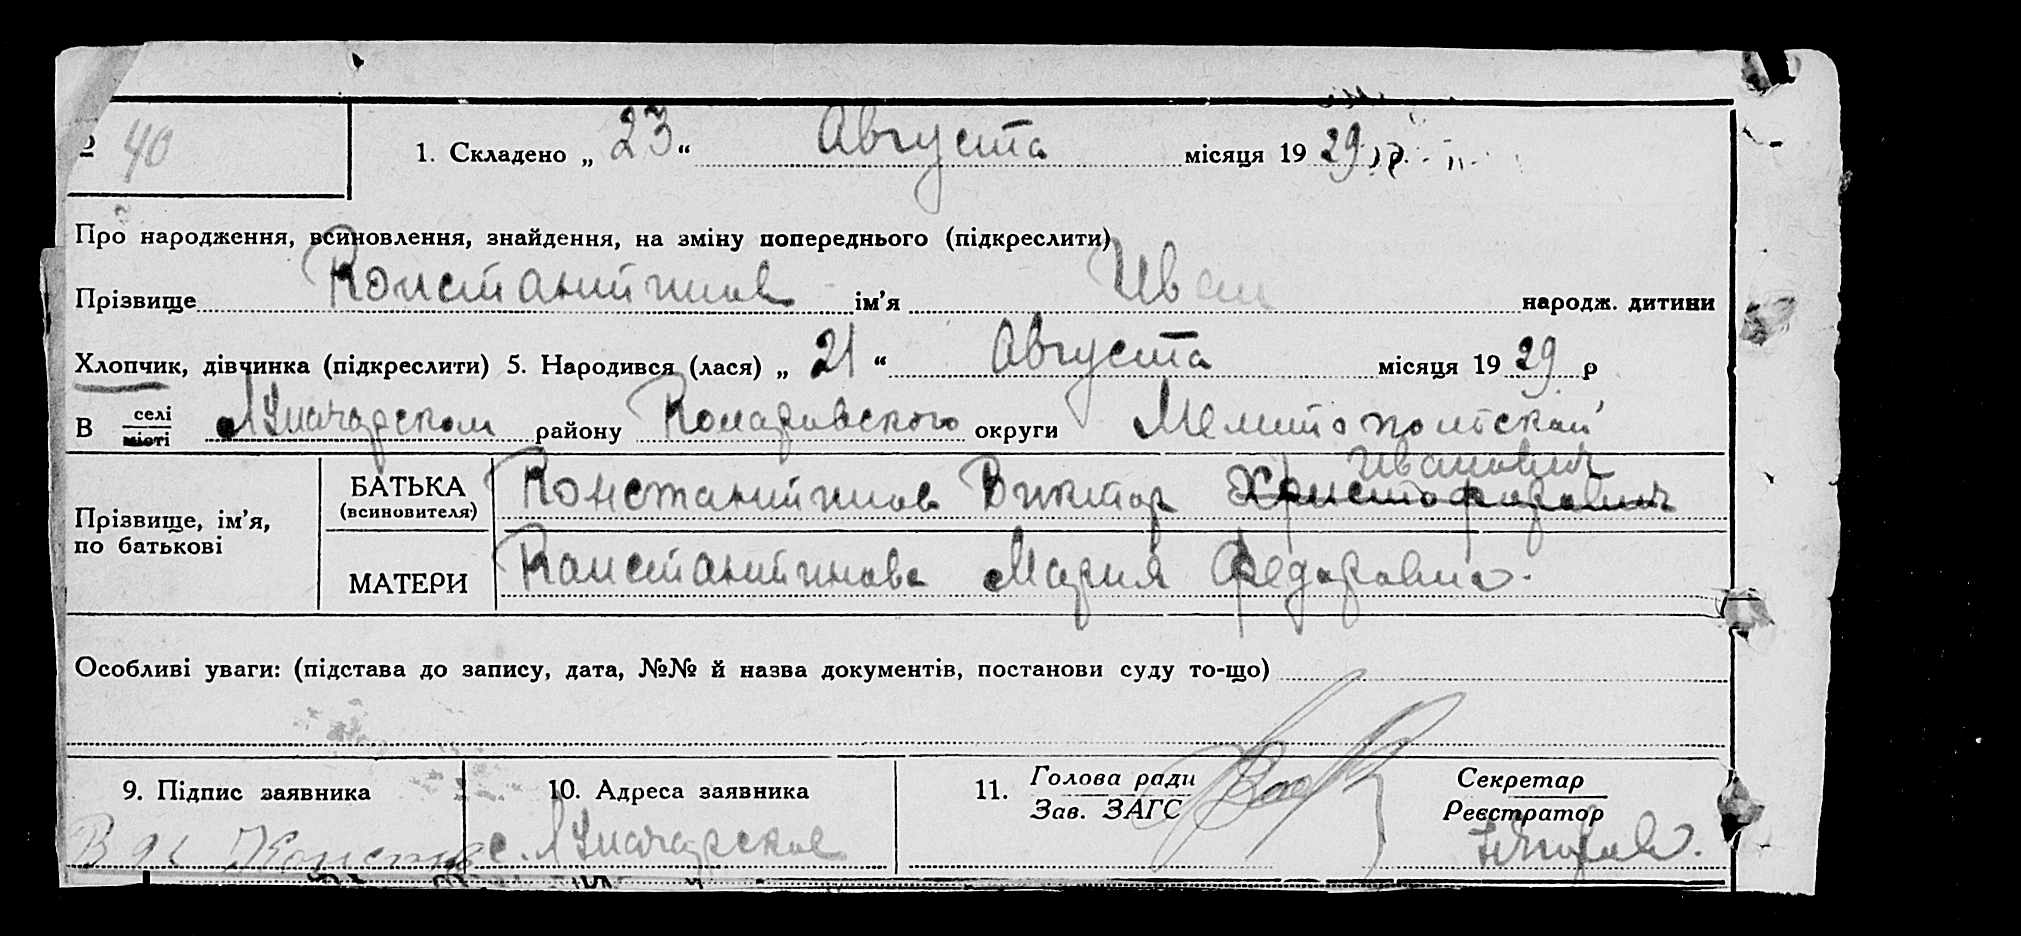 № 40
1. Складено „ 23 “ Августа місяця 19 29 р.
Про народження, всиновлення, знайдення, на зміну попереднього (підкреслити)
Прізвище Константинов ім’я Иван народж. дитини
Хлопчик, дівчинка (підкреслити) 5. Народився (лася) „ 21 “ Августа місяця 19 29 р
В селі
місті Луначарском району Комаровского округи Мелитопольской
Ивановичь
Прізвище, ім’я,
по батькові
БАТЬКА
(всиновителя)
Константинов Виктор Христофорович
МАТЕРИ
Константинова Мария Федоровна.
Особливі уваги: (підстава до запису, дата, №№ й назва документів, постанови суду то-що)
9. Підпис заявника
10. Адреса заявника
с. Луначарское
11. Голова ради
Зав. ЗАГС
Секретар
Реєстратор